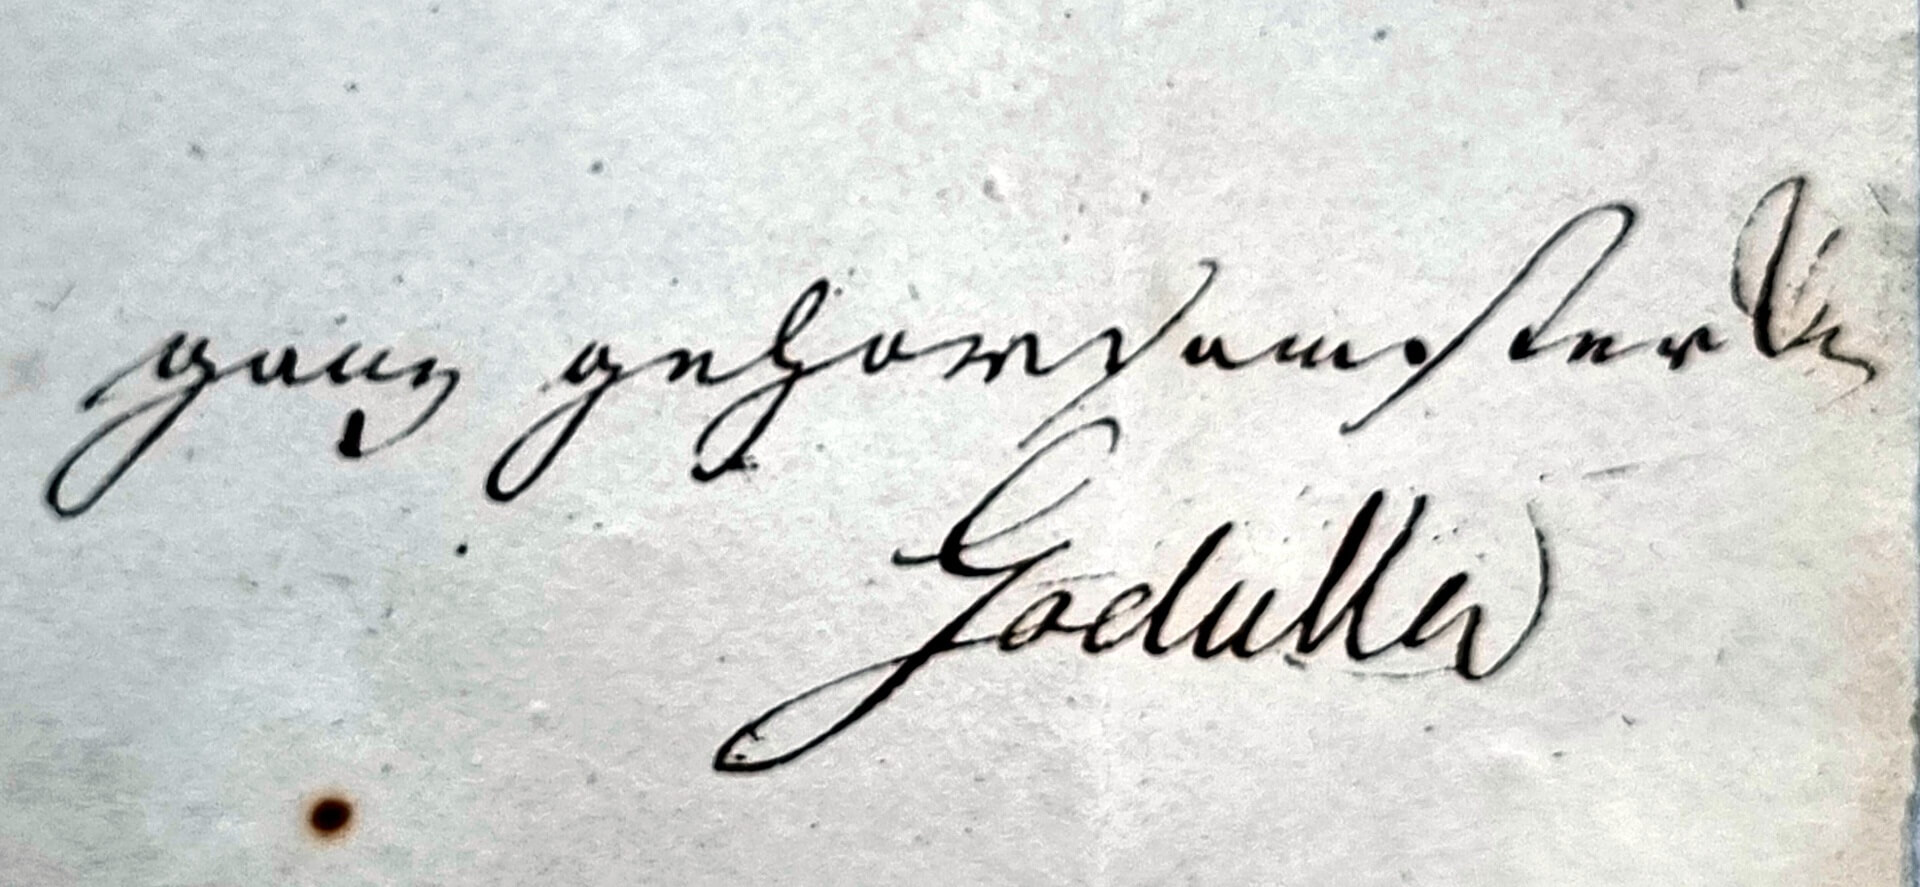 ganz gehorsamster
Godulla